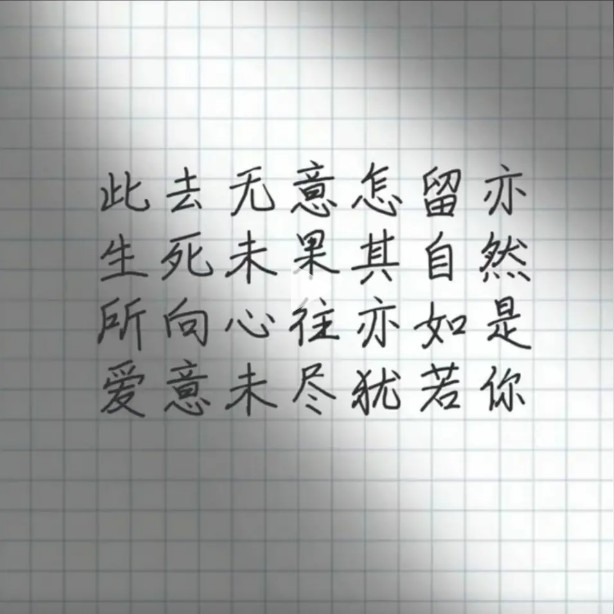 此去无意怎留亦
生死未果其自然
所向心往亦如是
爱意未尽犹若你